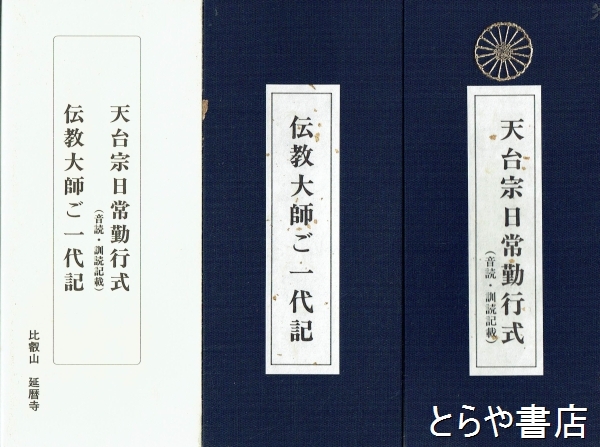 天台宗日常勤行式
(音読・訓読記載)
伝教大師ご一代記
比叡山 延暦寺
伝教大師ご一代記
天台宗日常勤行式
(音読・訓読記載)
とらや書店